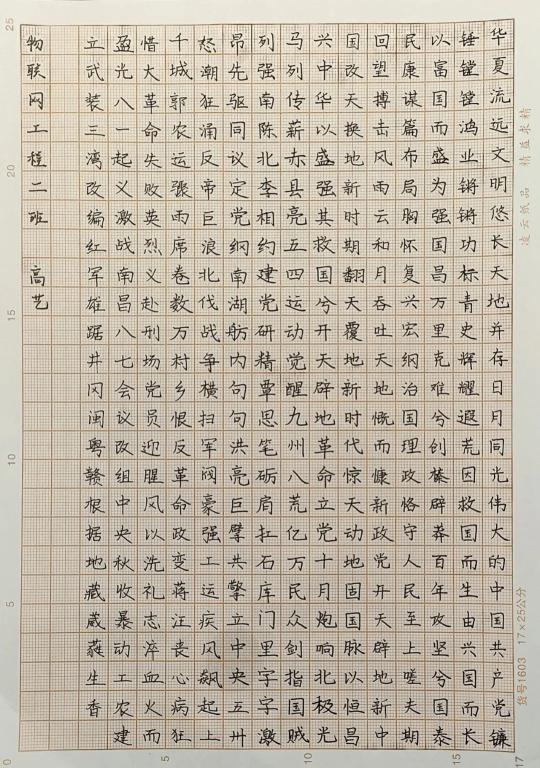 华夏流远文明悠长天地并存日月同光伟大的中国共产党镰
锤镗镗鸿业锵锵功标青史辉耀遐荒因救国而生由兴国而长
以富国而盛为强国昌万里克难兮创榛辟莽百年攻坚兮国泰
民康谋篇布局胸怀复兴宏纲治国理政恪守人民至上嗟夫期
回望搏击风雨云和月吞吐天地慨而慷新政党开天辟地新中
国改天换地新时期翻天覆地新时代惊天动地固国脉以恒昌
兴中华以盛强其救国兮开天辟地革命立党十月炮响北极光
马列传薪赤县亮五四运动觉醒九州八荒亿万民众剑指国贼
列强南陈北李相约建党研精覃思笔砺局扛石库门里字字激
昂先驱同议定党纲南湖舫内句句洪亮巨擘共擎立中央五卅
怒潮狂涌反帝巨浪北伐战争横扫军阀豪强工运疾风飙起上
千城郭农运骤雨席卷数万村乡恨反革命政变蒋汪丧心病狂
惜大革命失败英烈义赴刑场党员迎腥风以洗礼志淬血火而
盈光八一起义激战南昌八七会议改组中央秋收暴动工农建
立武装三湾改编红军雄踞井冈闽粤赣根据地藏葳蕤生香
物联网工程二班 高艺
凌云纸品 精益求精
货号1603 17×25公分
25
20
15
10
5
0
5
10
15
17